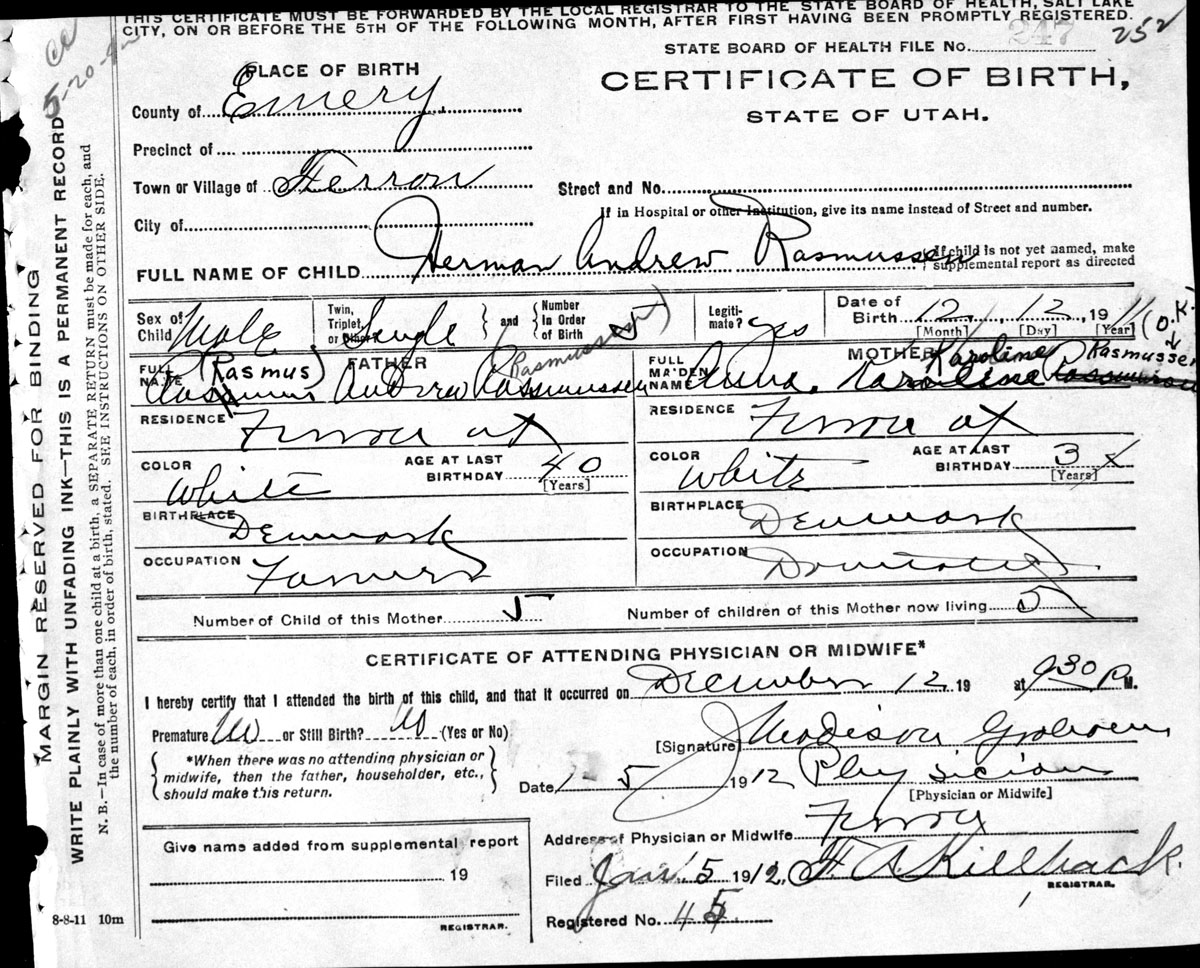 THIS CERTIFICATE MUST BE FORWARDED BY THE LOCAL REGISTRAR TO THE STATE BOARD OF HEALTH, SALT LAKE
CITY, ON OR BEFORE THE 5TH OF THE FOLLOWING MONTH, AFTER FIRST HAVING BEEN PROMPTLY REGISTERED.
STATE BOARD OF HEALTH FILE No. 247 252
PLACE OF BIRTH
CERTIFICATE OF BIRTH,
STATE OF UTAH.
County of Emery
Precinct of
Town or Village of Ferron
Street and No.
If in Hospital or other Institution, give its name instead of Street and number.
City of
FULL NAME OF CHILD Herman Andrew Rasmussen
If child is not yet named, make
supplemental report as directed
Sex of Child Male
Twin, Triplet, or Other? Single and Number In Order of Birth
Legitimate? yes
Date of Birth 12 12, 1911
[Month] [Day] [Year]
(O.K.)
FATHER
FULL NAME (Rasmus) Andrew Rasmussen
(Rasmussen)
MOTHER
FULL MAIDEN NAME Anna Karoline Rasmussen
Karoline Rasmussen
RESIDENCE Ferron ut
RESIDENCE Ferron ut
COLOR White
AGE AT LAST BIRTHDAY 40
[Years]
COLOR White
AGE AT LAST BIRTHDAY 3
[Years]
BIRTHPLACE Denmark
BIRTHPLACE Denmark
OCCUPATION Farmer
OCCUPATION Domestic
Number of Child of this Mother 5
Number of children of this Mother now living 5
CERTIFICATE OF ATTENDING PHYSICIAN OR MIDWIFE*
I hereby certify that I attended the birth of this child, and that it occurred on December 12 19 at 930 P M.
Premature No or Still Birth? No (Yes or No)
*When there was no attending physician or
midwife, then the father, householder, etc.,
should make this return.
[Signature] J Madison
Date, 1-5 1912 Physician
[Physician or Midwife]
Address of Physician or Midwife Ferron
Give name added from supplemental report
19
REGISTRAR.
Filed Jan. 5 1912, F A Killpack.
REGISTRAR.
Registered No. 45
8-8-11 10m
MARGIN RESERVED FOR BINDING
WRITE PLAINLY WITH UNFADING INK—THIS IS A PERMANENT RECORD
N. B.—In case of more than one child at a birth, a SEPARATE RETURN must be made for each, and
the number of each, in order of birth, stated. SEE INSTRUCTIONS ON OTHER SIDE.